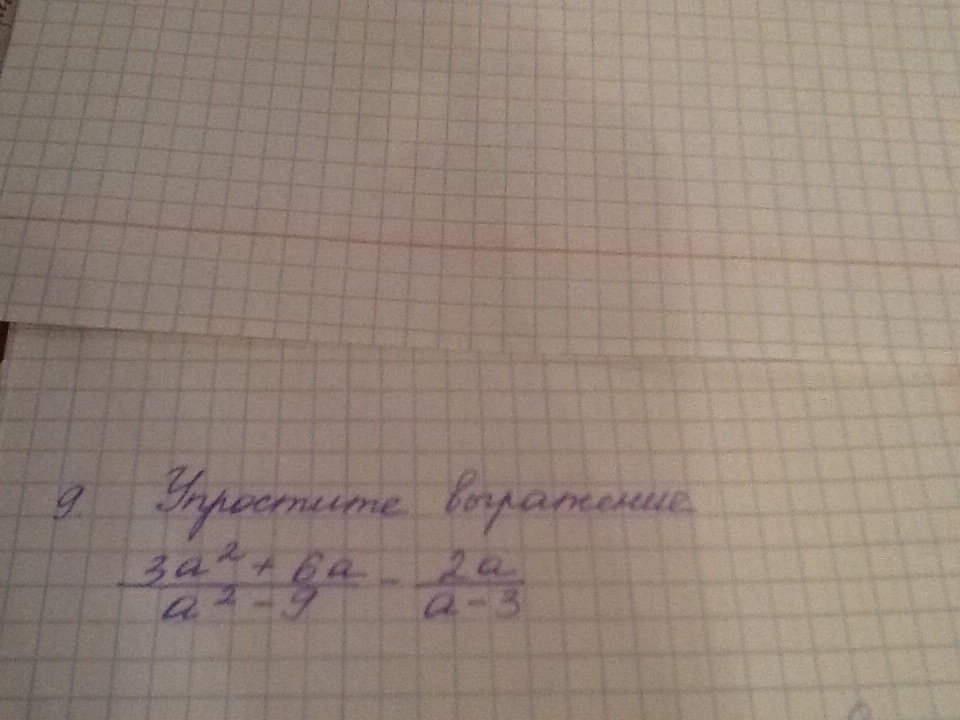 9. Упростите выражение
3a² + 6a / a² - 9 - 2a / a - 3